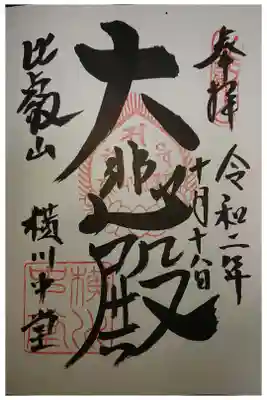 奉拝
令和二年
十月十八日
大悲殿
比叡山
横川中堂